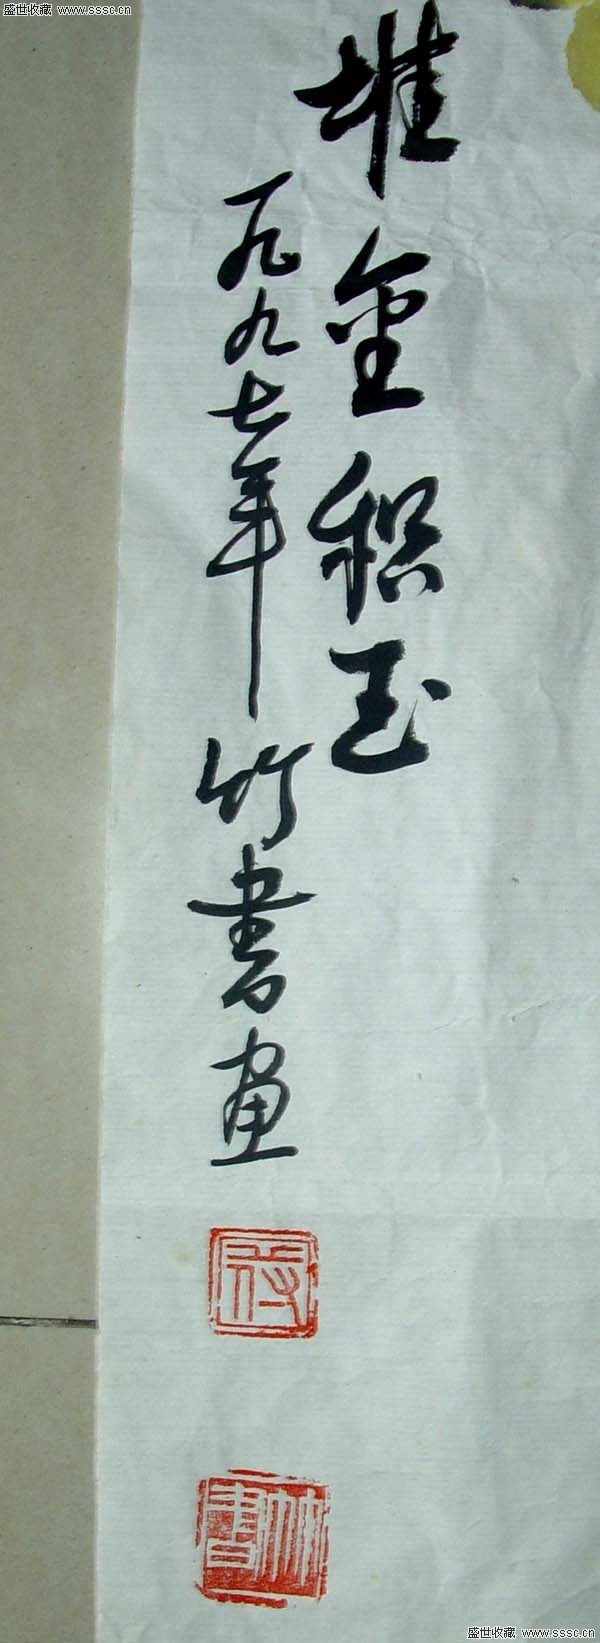 盛世收藏 www.sssc.cn
堆金积玉
一九九七年竹書画
盛世收藏 www.sssc.cn